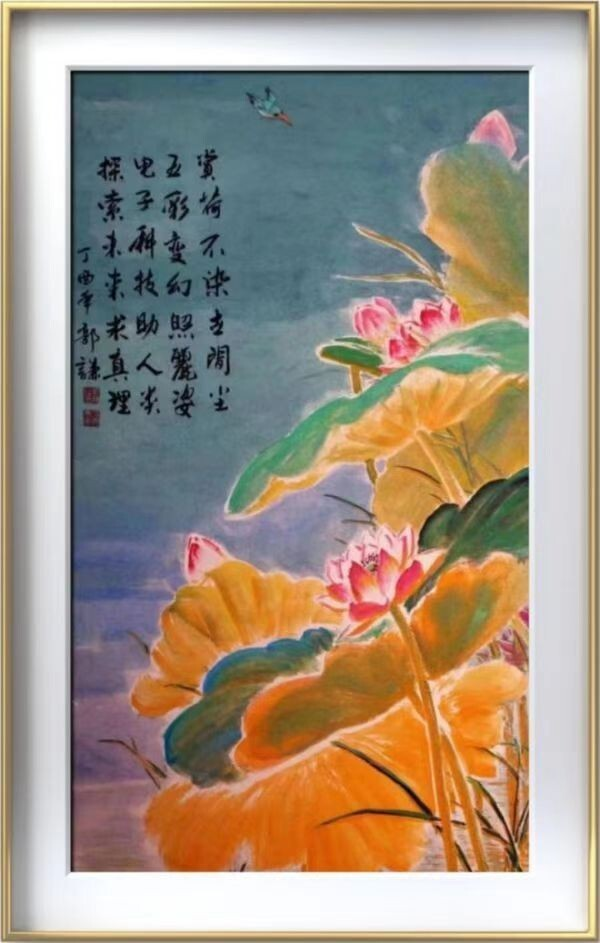 赏荷不染世间尘
五彩变幻照丽姿
电子科技助人类
探索未来求真理
丁酉年郭谦